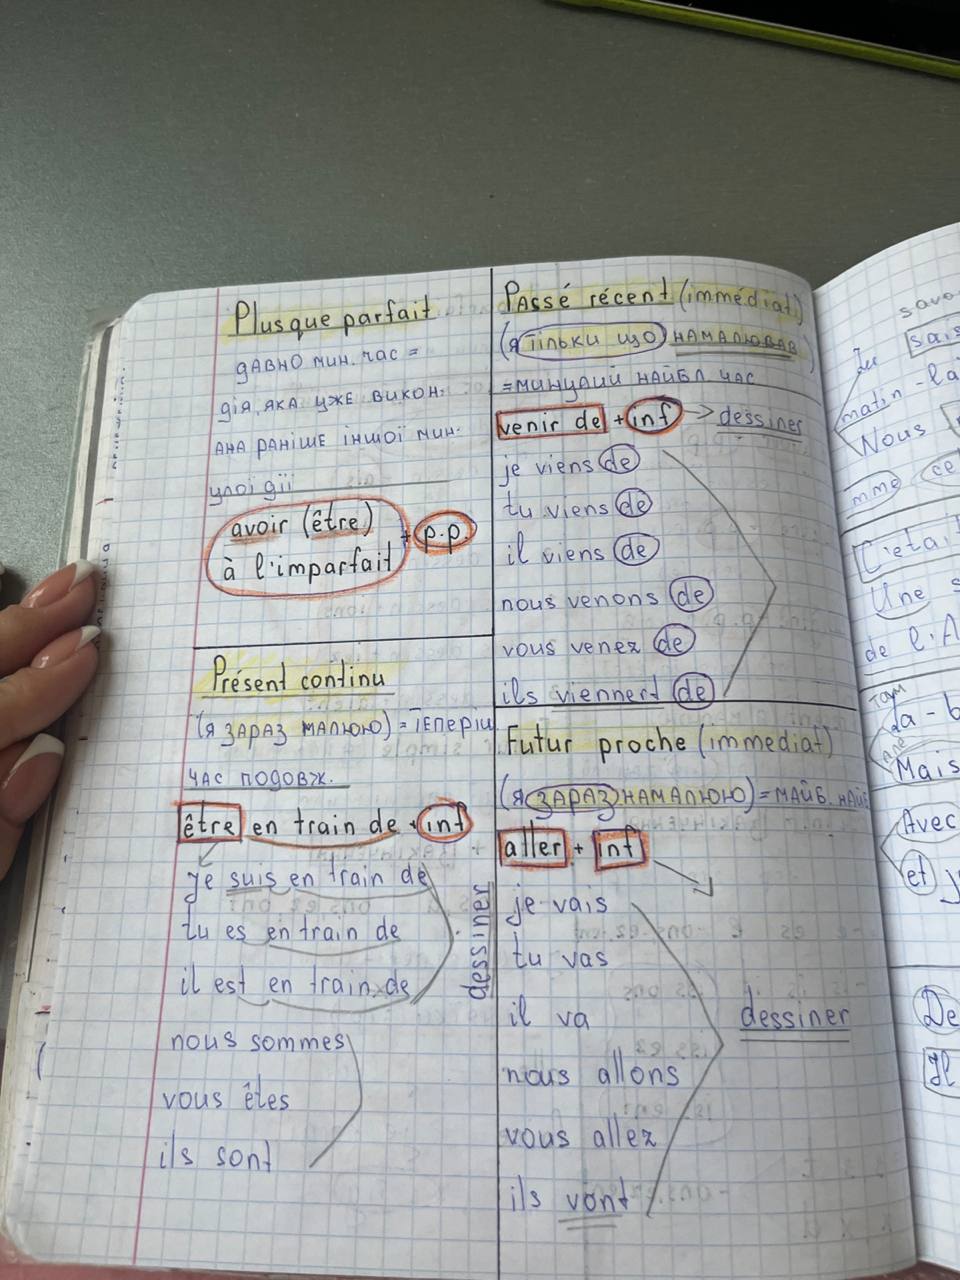 Plusque parfait
давно мин. час =
дія, яка уже викон-
ана раніше іншої мин-
улої дії
avoir (être)
à l'imparfait + p.p.
Présent continu
(я зараз малюю) = теперіш
час подовж.
être en train de + inf
je suis en train de
tu es en train de
il est en train de
dessiner
nous sommes
vous êtes
ils sont
Passé récent (immédiat)
(я тільки що намалював)
= минулий найбл час
venir de + inf → dessiner
je viens de
tu viens de
il viens de
nous venons de
vous venez de
ils viennent de
Futur proche (immediat)
(я зараз намалюю) = майб. найб
aller + inf
je vais
tu vas
il va
dessiner
nous allons
vous allez
ils vont
savo
sais
Ju
matin - là
Nous
mme ce
C'éta
Une s
de l'A
там
là - b
Mais
Avec
et j
De
Il